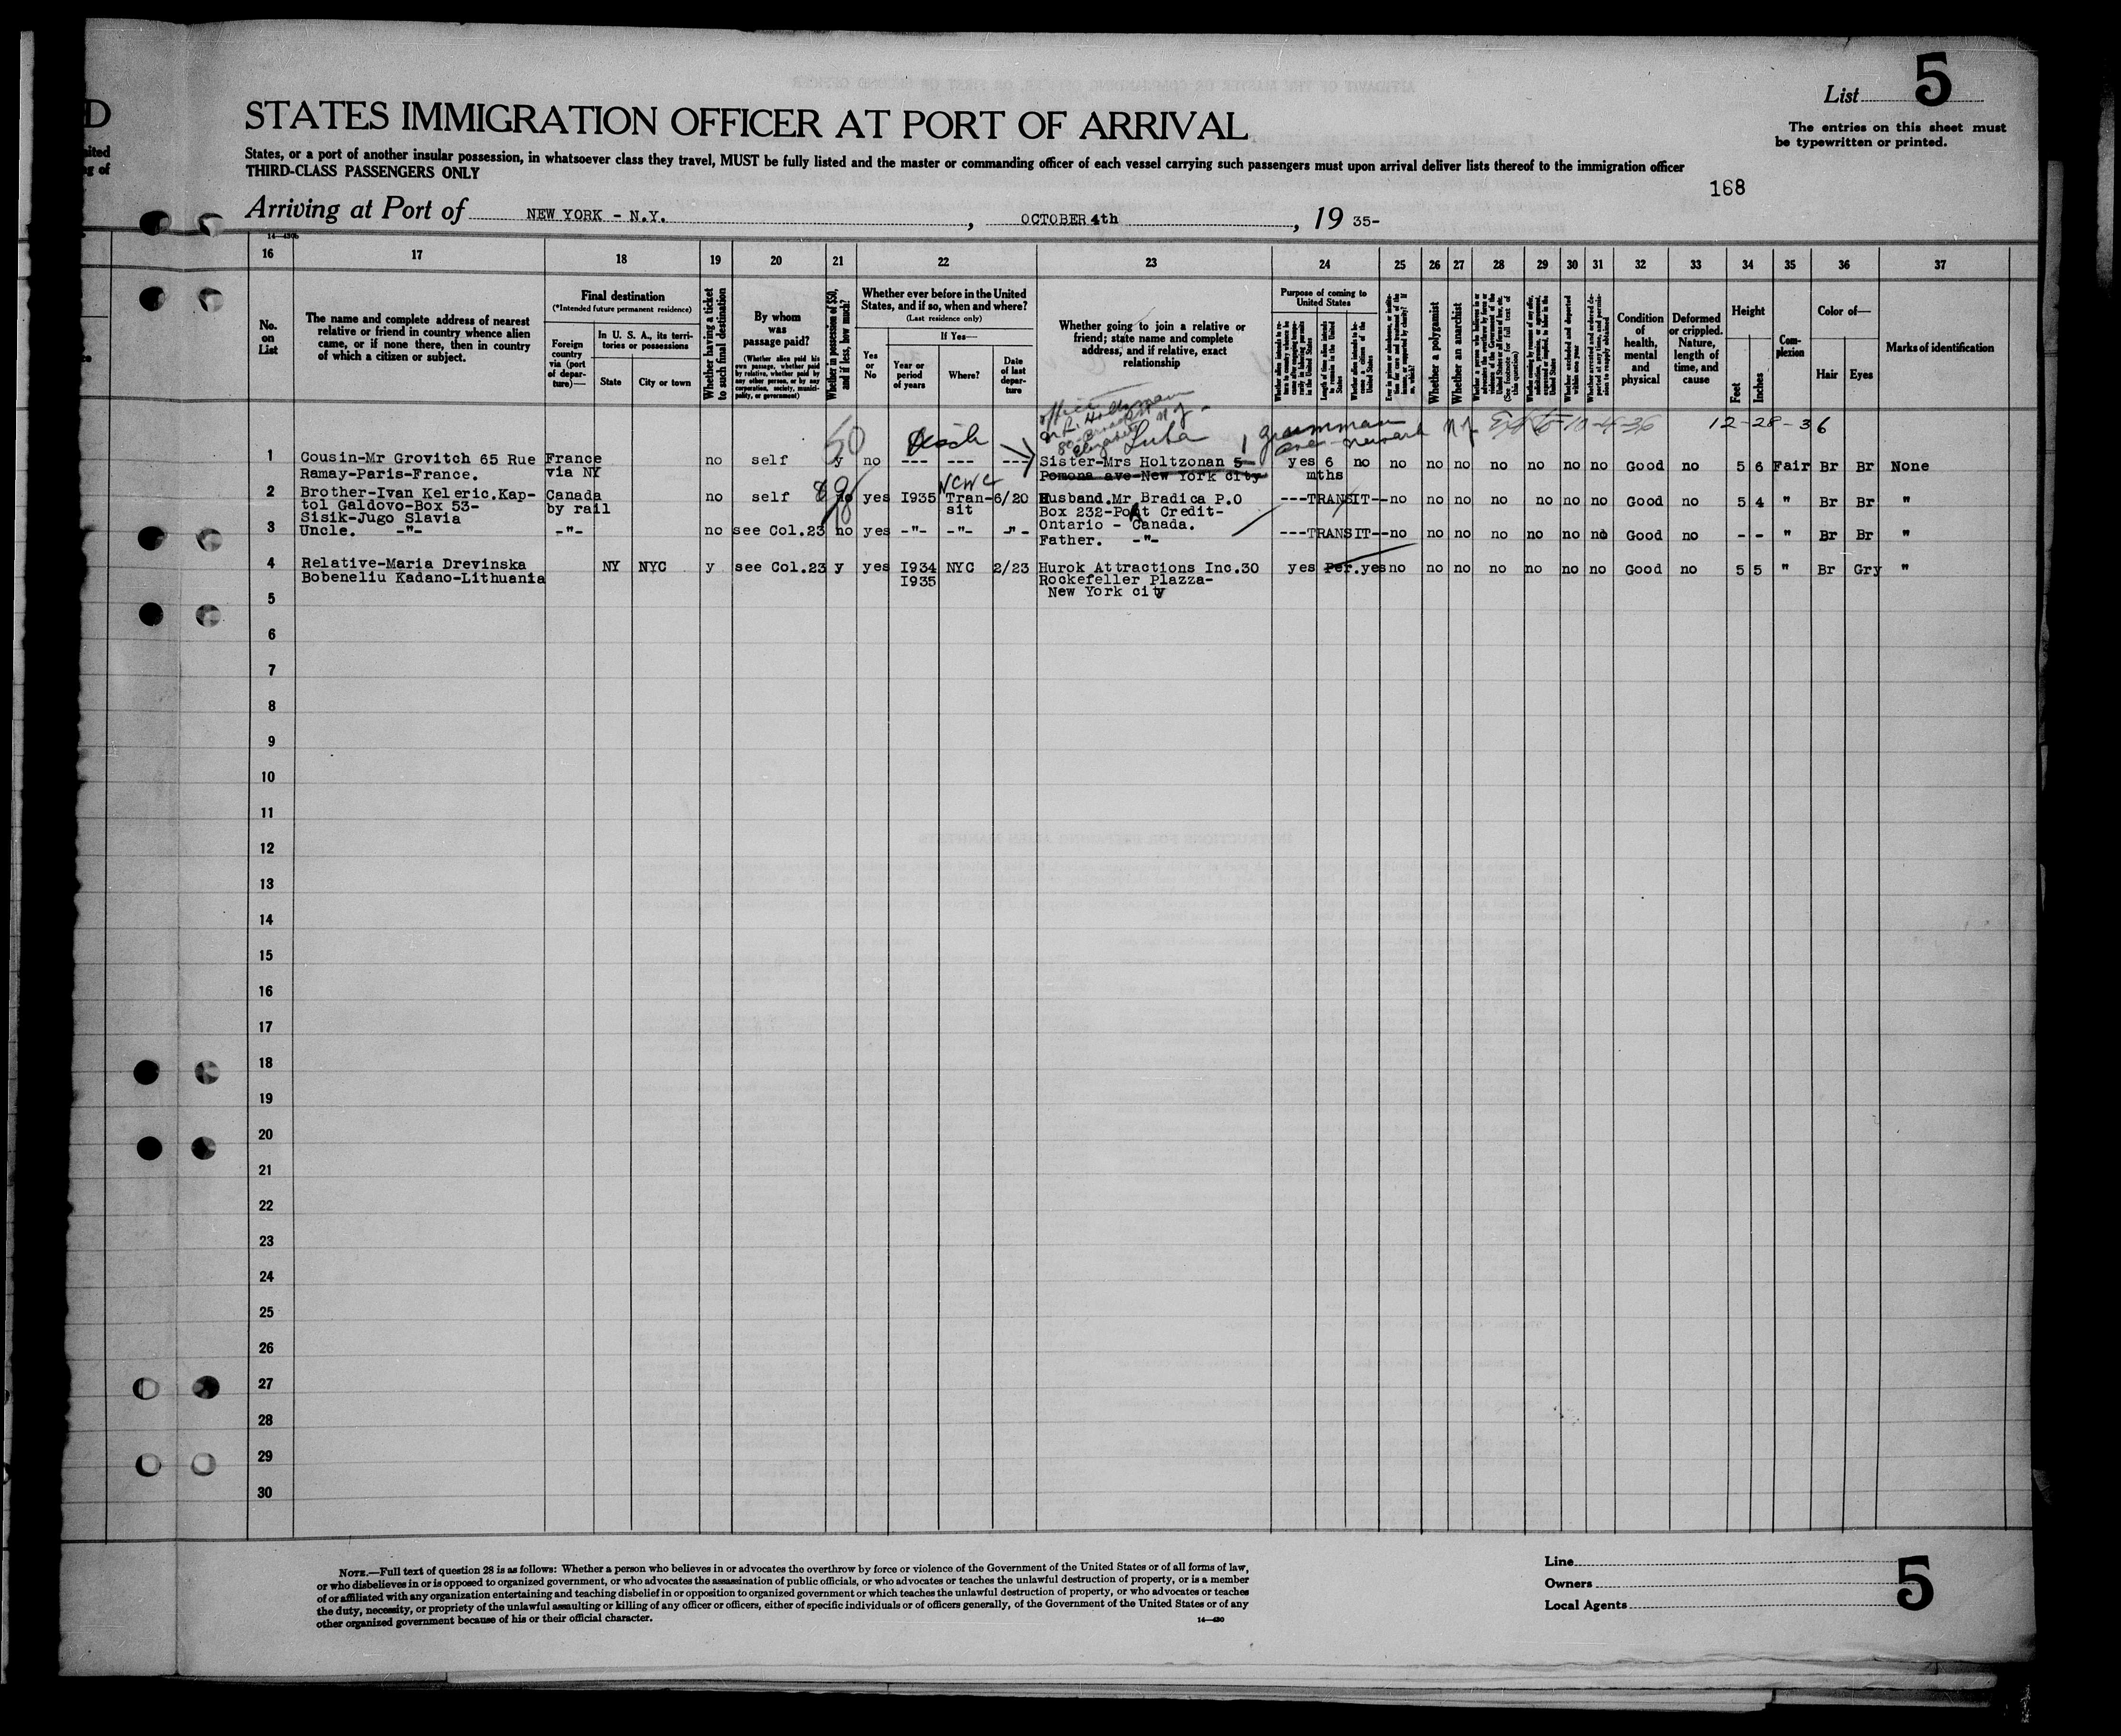 D
List 5
STATES IMMIGRATION OFFICER AT PORT OF ARRIVAL
The entries on this sheet must
be typewritten or printed.
States, or a port of another insular possession, in whatsoever class they travel, MUST be fully listed and the master or commanding officer of each vessel carrying such passengers must upon arrival deliver lists thereof to the immigration officer
THIRD-CLASS PASSENGERS ONLY
168
Arriving at Port of NEW YORK - N.Y. , OCTOBER 4th , 19 35-
16 17 18 19 20 21 22 23 24 25 26 27 28 29 30 31 32 33 34 35 36 37
No. on List
The name and complete address of nearest relative or friend in country whence alien came, or if none there, then in country of which a citizen or subject.
Final destination
(*Intended future permanent residence)
Foreign country via (port of departure)—
In U. S. A., its territories or possessions
State
City or town
Whether having a ticket to such final destination
By whom was passage paid?
(Whether alien paid his own passage, whether paid by relative, whether paid by any other person, or by any corporation, society, municipality, or government)
Whether in possession of $50, and if less, how much?
Whether ever before in the United States, and if so, when and where?
(Last residence only)
Yes or No
If Yes—
Year or period of years
Where?
Date of last departure
Whether going to join a relative or friend; state name and complete address, and if relative, exact relationship
Purpose of coming to United States
Length of time alien intends to remain in the United States
Whether alien intends to become a citizen of the United States
Whether a polygamist
Whether an anarchist
Condition of health, mental and physical
Deformed or crippled. Nature, length of time, and cause
Height
Feet
Inches
Complexion
Color of—
Hair
Eyes
Marks of identification
50
Luba
12-28-36
1 Cousin-Mr Grovitch 65 Rue France no self y no --- --- --- Sister-Mrs Holtzonan 5 yes 6 no no no no no no no no Good no 5 6 Fair Br Br None
Ramay-Paris-France. via NY Pomona ave-New York city mths
NCWC
2 Brother-Ivan Keleric.Kap- Canada no self no yes I935 Tran- 6/20 Husband.Mr Bradica P.O ---TRANSIT-- no no no no no no no Good no 5 4 " Br Br "
tol Galdovo-Box 53- by rail sit Box 232-Port Credit-
Sisik-Jugo Slavia Ontario - Canada.
3 Uncle. -"- -"- no see Col.23 no yes -"- -"- -"- Father. -"- ---TRANSIT-- no no no no no no no Good no - - " Br Br "
4 Relative-Maria Drevinska NY NYC y see Col.23 y yes I934 NYC 2/23 Hurok Attractions Inc.30 yes Per. yes no no no no no no no Good no 5 5 " Br Gry "
Bobeneliu Kadano-Lithuania I935 Rockefeller Plazza-
New York city
5
6
7
8
9
10
11
12
13
14
15
16
17
18
19
20
21
22
23
24
25
26
27
28
29
30
NOTE.—Full text of question 28 is as follows: Whether a person who believes in or advocates the overthrow by force or violence of the Government of the United States or of all forms of law,
or who disbelieves in or is opposed to organized government, or who advocates the assassination of public officials, or who advocates or teaches the unlawful destruction of property, or is a member
of or affiliated with any organization entertaining and teaching disbelief in or opposition to organized government or which teaches the unlawful destruction of property, or who advocates or teaches
the duty, necessity, or propriety of the unlawful assaulting or killing of any officer or officers, either of specific individuals or of officers generally, of the Government of the United States or of any
other organized government because of his or their official character.
14—430
Line
Owners
Local Agents
5